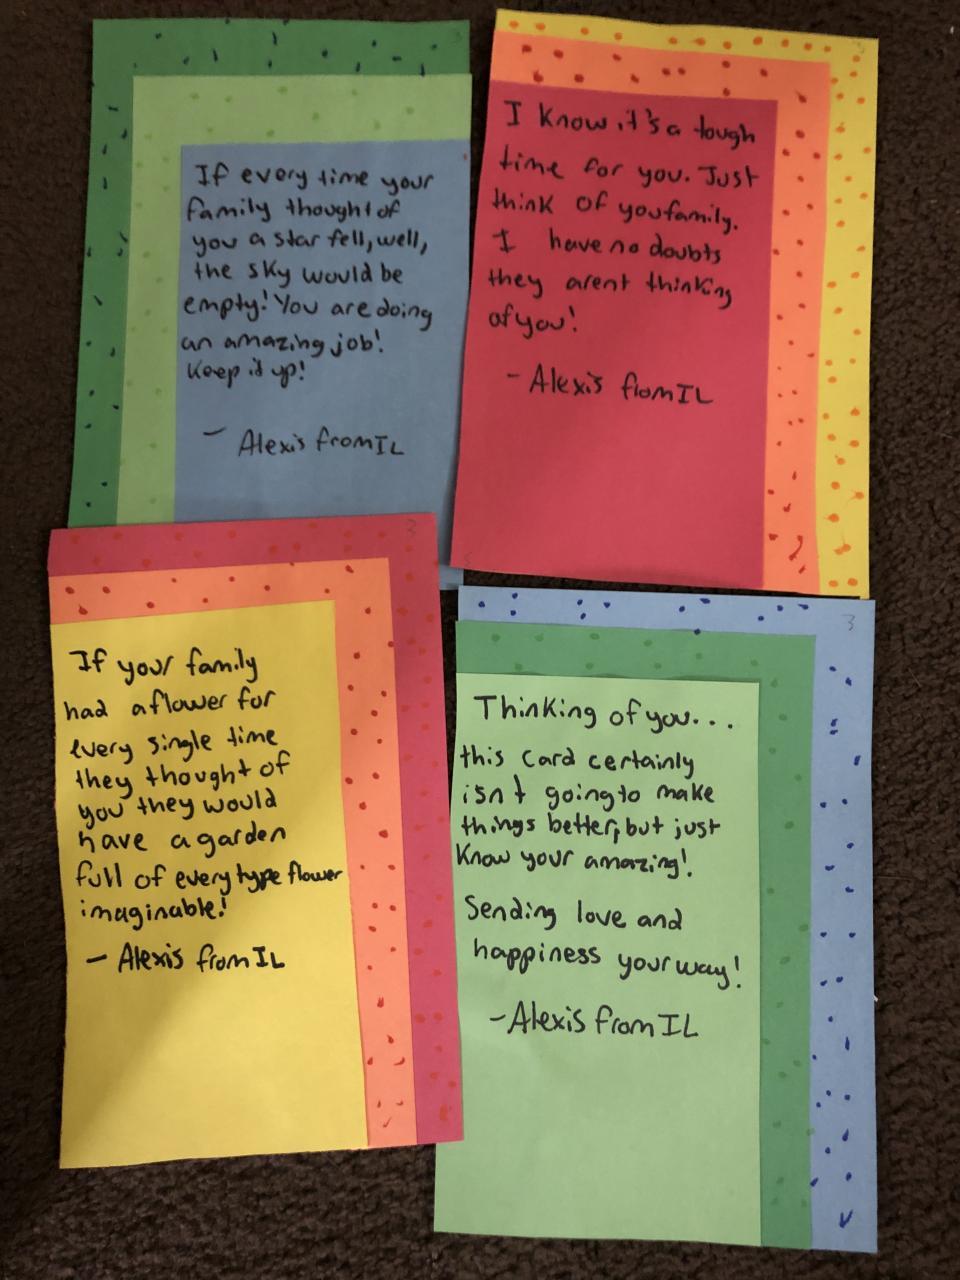 If every time your
family thought of
you a star fell, well,
the sky would be
empty! You are doing
an amazing job!
Keep it up!
- Alexis from IL
I Know it's a tough
time for you. Just
think of you family.
I have no doubts
they arent thinking
of you!
- Alexis from IL
3
If your family
had a flower for
every single time
they thought of
you they would
have a garden
full of every type flower
imaginable!
- Alexis from IL
3
Thinking of you...
this card certainly
isn't going to make
things better, but just
Know your amazing!
Sending love and
happiness your way!
- Alexis from IL